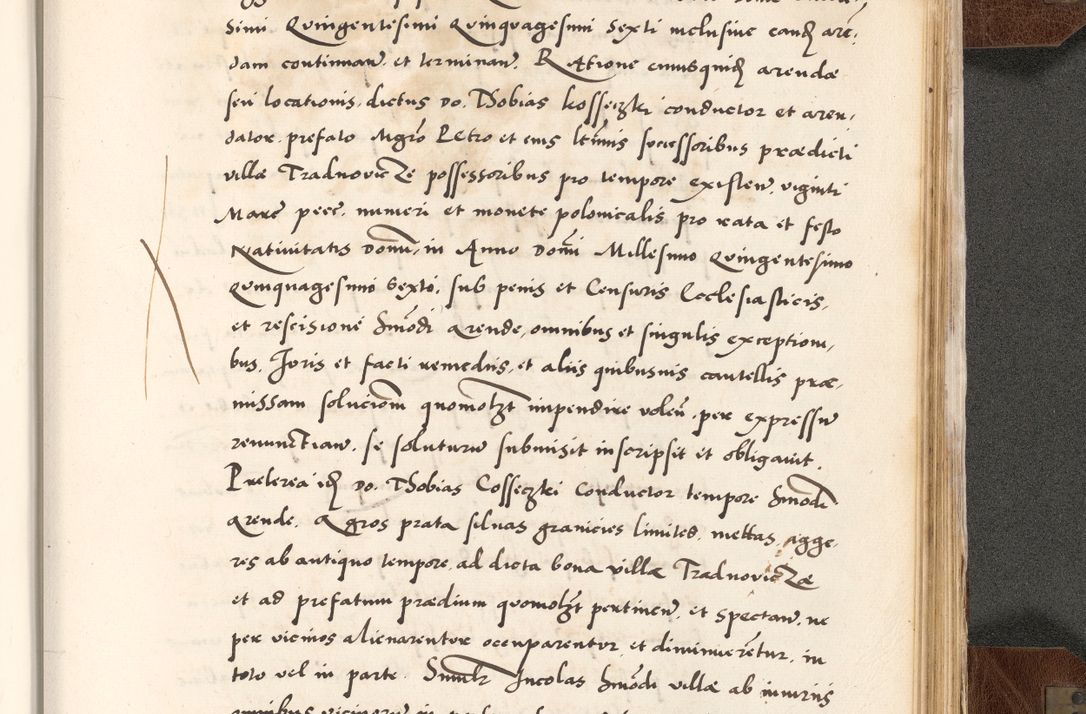 simi Quingentesimi Quinquagesimi Sexti inclusiue eand are,
dam continuan. et terminan. Ratione cuiusquid arendæ
seu locationis, dictus Do. Thobias kosseczki conductor et aren,
dator, prefato Mgro Petro et eius ltimis successoribus prædicti
villæ Tradnovicze possessoribus pro tempore existen. viginti
Marc pecc. numeri et monete polonicalis pro rata et festo
Natiuitatis Domi, in Anno Domi Millesimo Quingentesimo
Quinquagesimo Sexto, sub penis et Censuris Ecclesiasticis,
et rescisione hmodi arende, omnibus et singulis exception,
bus, Joris et facti remediis, et aliis quibusuis cautellis præ,
missam solucionem quomolzt impendire volen. per expressu
renunctian. se soluturu submisit inscripsit et obligauit.
Preterea id Do. Thobias Cosseczki Conductor tempore hmodi
arende, agros prata siluas granicies limites, mettas, agge,
res ab antiquo tempore, ad dicta bona villæ Tradnoviczæ
et ad prefatum prædium quomolzt pertinen. et spectan. ne
per vicinos alienarentur occuparentur et diminuerentur, in
toto vel in parte. Simlr Incolas hmodi villæ ab iniuriis
omnibus vicinorum in